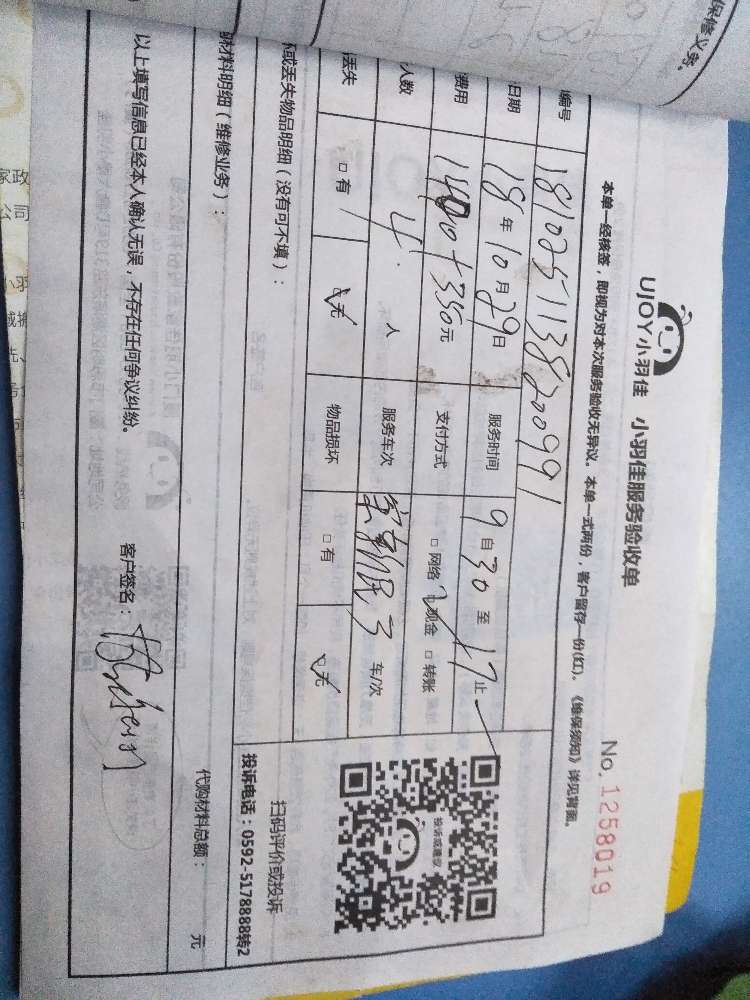 保修义务。
UJOY小羽佳 小羽佳服务验收单
No. 1258019
本单一经核签，即视为对本次服务验收无异议。本单一式两份，客户留存一份(红)。《维保须知》详见背面。
编号 1810251138200991
日期 18年10月29日 服务时间 9自30至17止
费用 1400+350元 支付方式 □网络 ☑现金 □转账
人数 4人 服务车次 车/次
丢失 □有 ☑无 物品损坏 □有 ☑无
扫码评价或投诉
投诉电话：0592-5178888转2
坏或丢失物品明细（没有可不填）：
材料明细（维修业务）： 代购材料总额： 元
以上填写信息已经本人确认无误，不存在任何争议纠纷。 客户签名：
投诉或建议
家政
公司